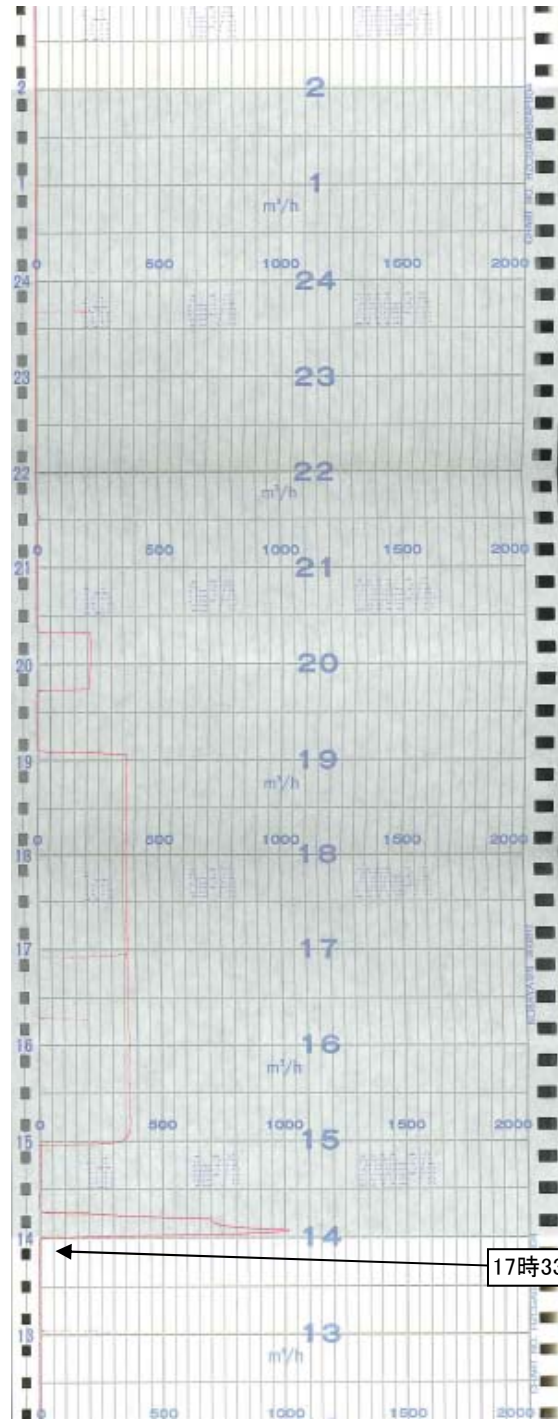 2 2
1 1
m³/h
0 500 1000 1500 2000
24 24
23 23
22 22
m³/h
0 500 1000 1500 2000
21 21
20 20
19 19
m³/h
0 500 1000 1500 2000
18 18
17 17
16 16
m³/h
0 500 1000 1500 2000
15 15
14 14
17時33
13 13
m³/h
0 500 1000 1500 2000